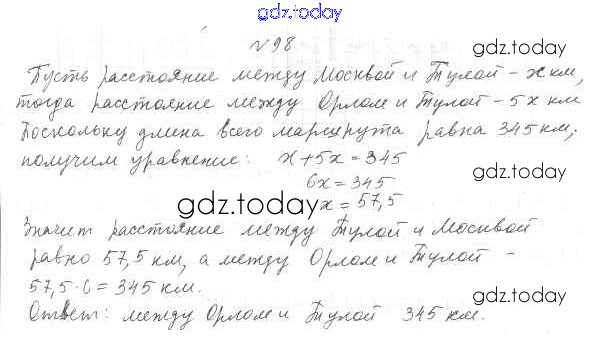 gdz.today
№98
gdz.today
Пусть расстояние между Москвой и Тулой - x км,
тогда расстояние между Орлом и Тулой - 5x км
gdz.today
Поскольку длина всего маршрута равна 345 км,
получим уравнение: x+5x=345
gdz.today
6x=345
x=57,5
gdz.today
Значит расстояние между Тулой и Москвой
равно 57,5 км, а между Орлом и Тулой -
gdz.today
57,5·6=345 км.
gdz.today
Ответ: между Орлом и Тулой 345 км.